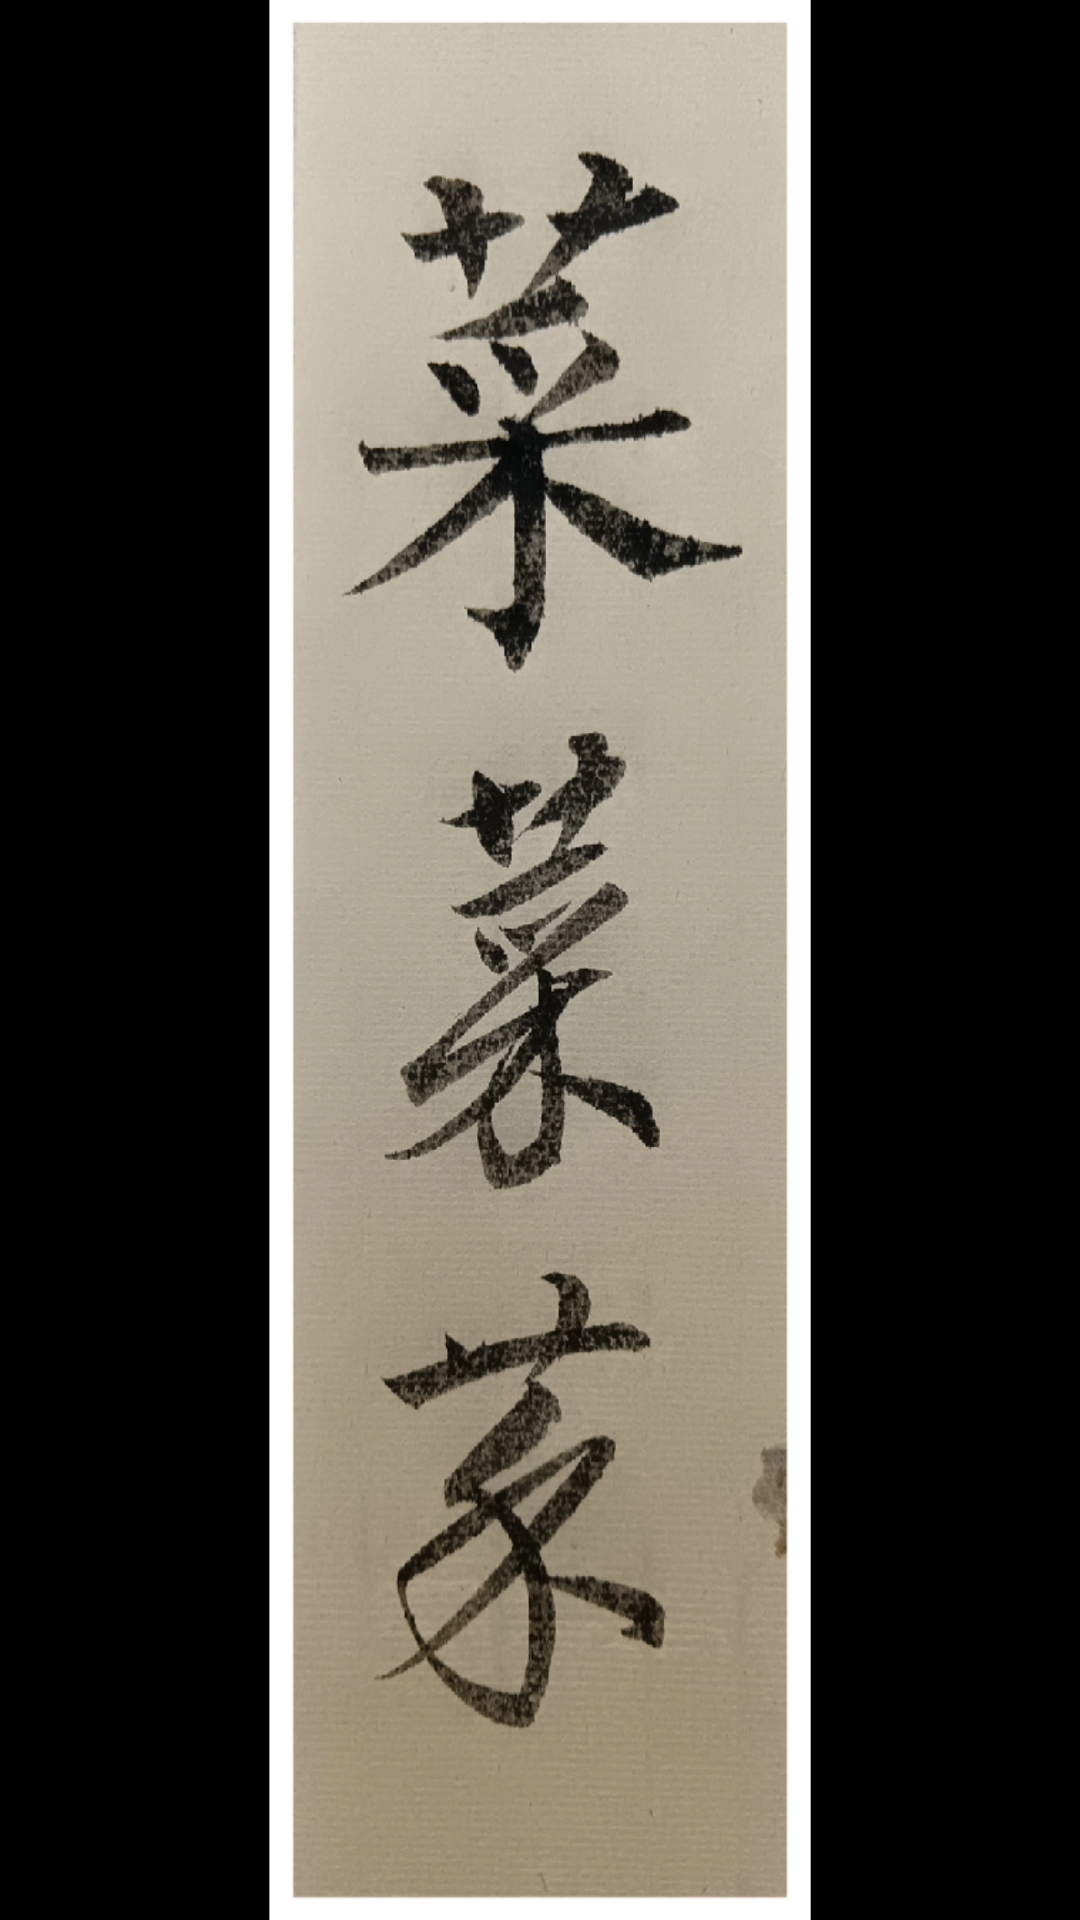 菜菜菜